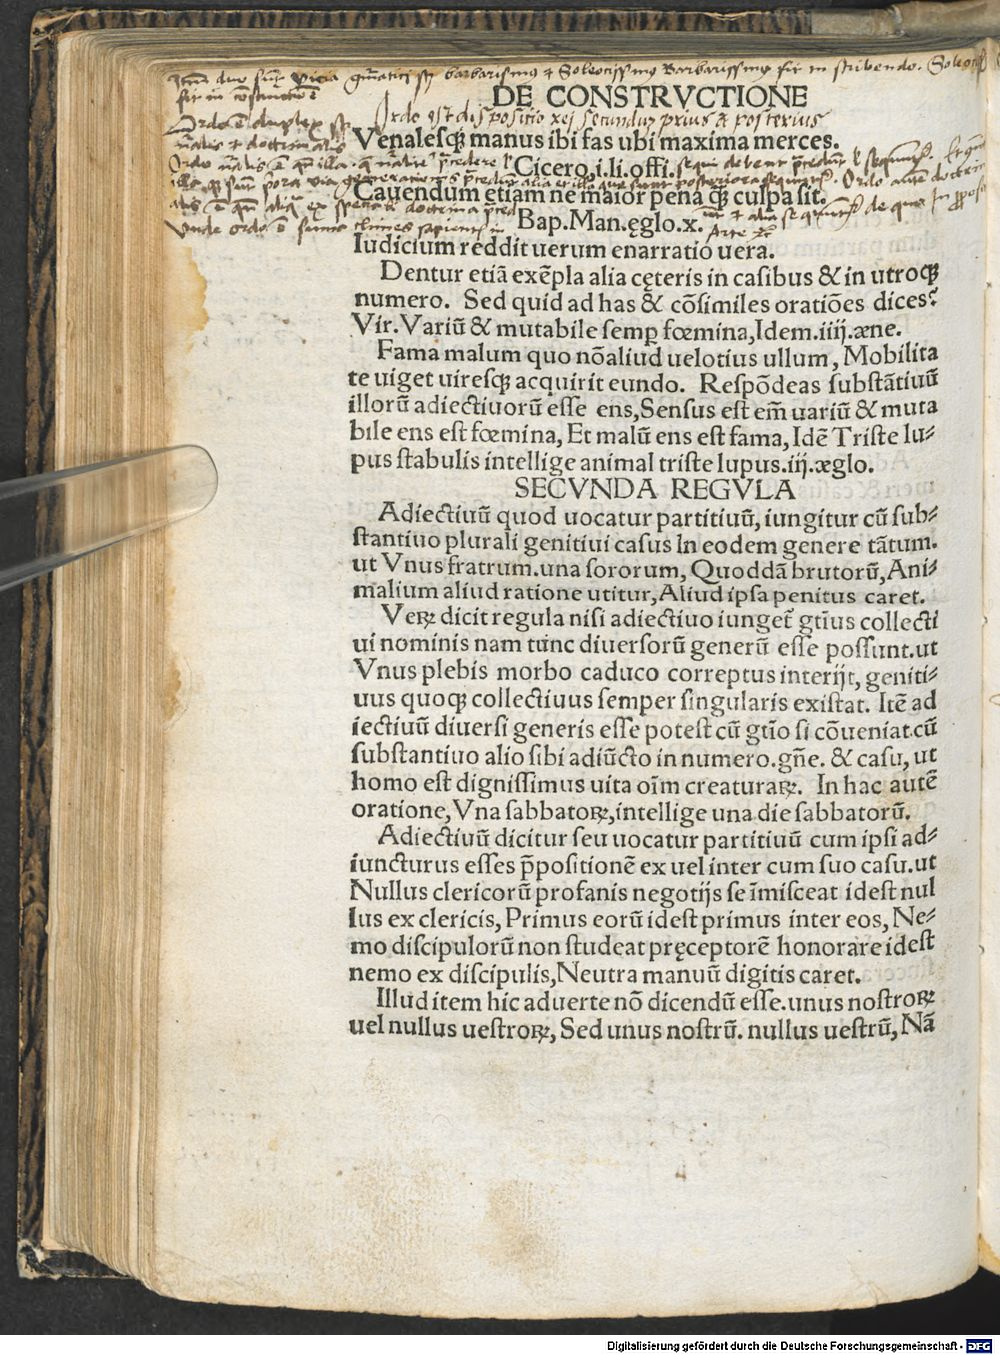 barbarismus Barbarissmus fit in scribendo.
DE CONSTRVCTIONE
Ordo est dispositio rei secundum prius et posterius
Venalesqꝫ manus ibi fas ubi maxima merces.
Cicero,i.li.offi.
Cauendum etiam ne maior pena ꝙ̃ culpa sit.
Bap.Man.ęglo.x.
Iudicium reddit uerum enarratio uera.
Dentur etiã exẽpla alia cęteris in casibus & in utroqꝫ
numero. Sed quid ad has & cõsimiles oratiões dices?
Vir.Variũ & mutabile semꝑ fœmina,Idem.iiij.æne.
Fama malum quo nõ aliud uelotius ullum, Mobilita
te uiget uiresqꝫ acquirit eundo. Respõdeas substãtiuũ
illorũ adiectiuorũ esse ens,Sensus est em̃ uariũ & muta
bile ens est fœmina, Et malũ ens est fama, Idẽ Triste lu⸗
pus stabulis intellige animal triste lupus.iij.æglo.
SECVNDA REGVLA
Adiectiuũ quod uocatur partitiuũ, iungitur cũ sub⸗
stantiuo plurali genitiui casus In eodem genere tãtum.
ut Vnus fratrum.una sororum, Quoddã brutorũ,Ani⸗
malium aliud ratione utitur,Aliud ipsa penitus caret.
Veꝝ dicit regula nisi adiectiuo iunget̃ gt̃ius collecti
ui nominis nam tunc diuersorũ generũ esse possunt.ut
Vnus plebis morbo caduco correptus interijt, geniti⸗
uus quoqꝫ collectiuus semper singularis existat. Itẽ ad
iectiuũ diuersi generis esse potest cũ gt̃io si cõueniat.cũ
substantiuo alio sibi adiũcto in numero.gñe. & casu, ut
homo est dignissimus uita oĩm creaturaꝝ. In hac autẽ
oratione,Vna sabbatoꝝ,intellige una die sabbatorũ.
Adiectiuũ dicitur seu uocatur partitiuũ cum ipsi ad⸗
iuncturus esses p̃positionẽ ex uel inter cum suo casu.ut
Nullus clericorũ profanis negotijs se ĩmisceat idest nul
lus ex clericis, Primus eorũ idest primus inter eos, Ne⸗
mo discipulorũ non studeat pręceptorẽ honorare idest
nemo ex discipulis,Neutra manuũ digitis caret.
Illud item hic aduerte nõ dicendũ esse.unus nostroꝝ
uel nullus uestroꝝ, Sed unus nostrũ. nullus uestrũ, Nã
Digitalisierung gefördert durch die Deutsche Forschungsgemeinschaft - DFG